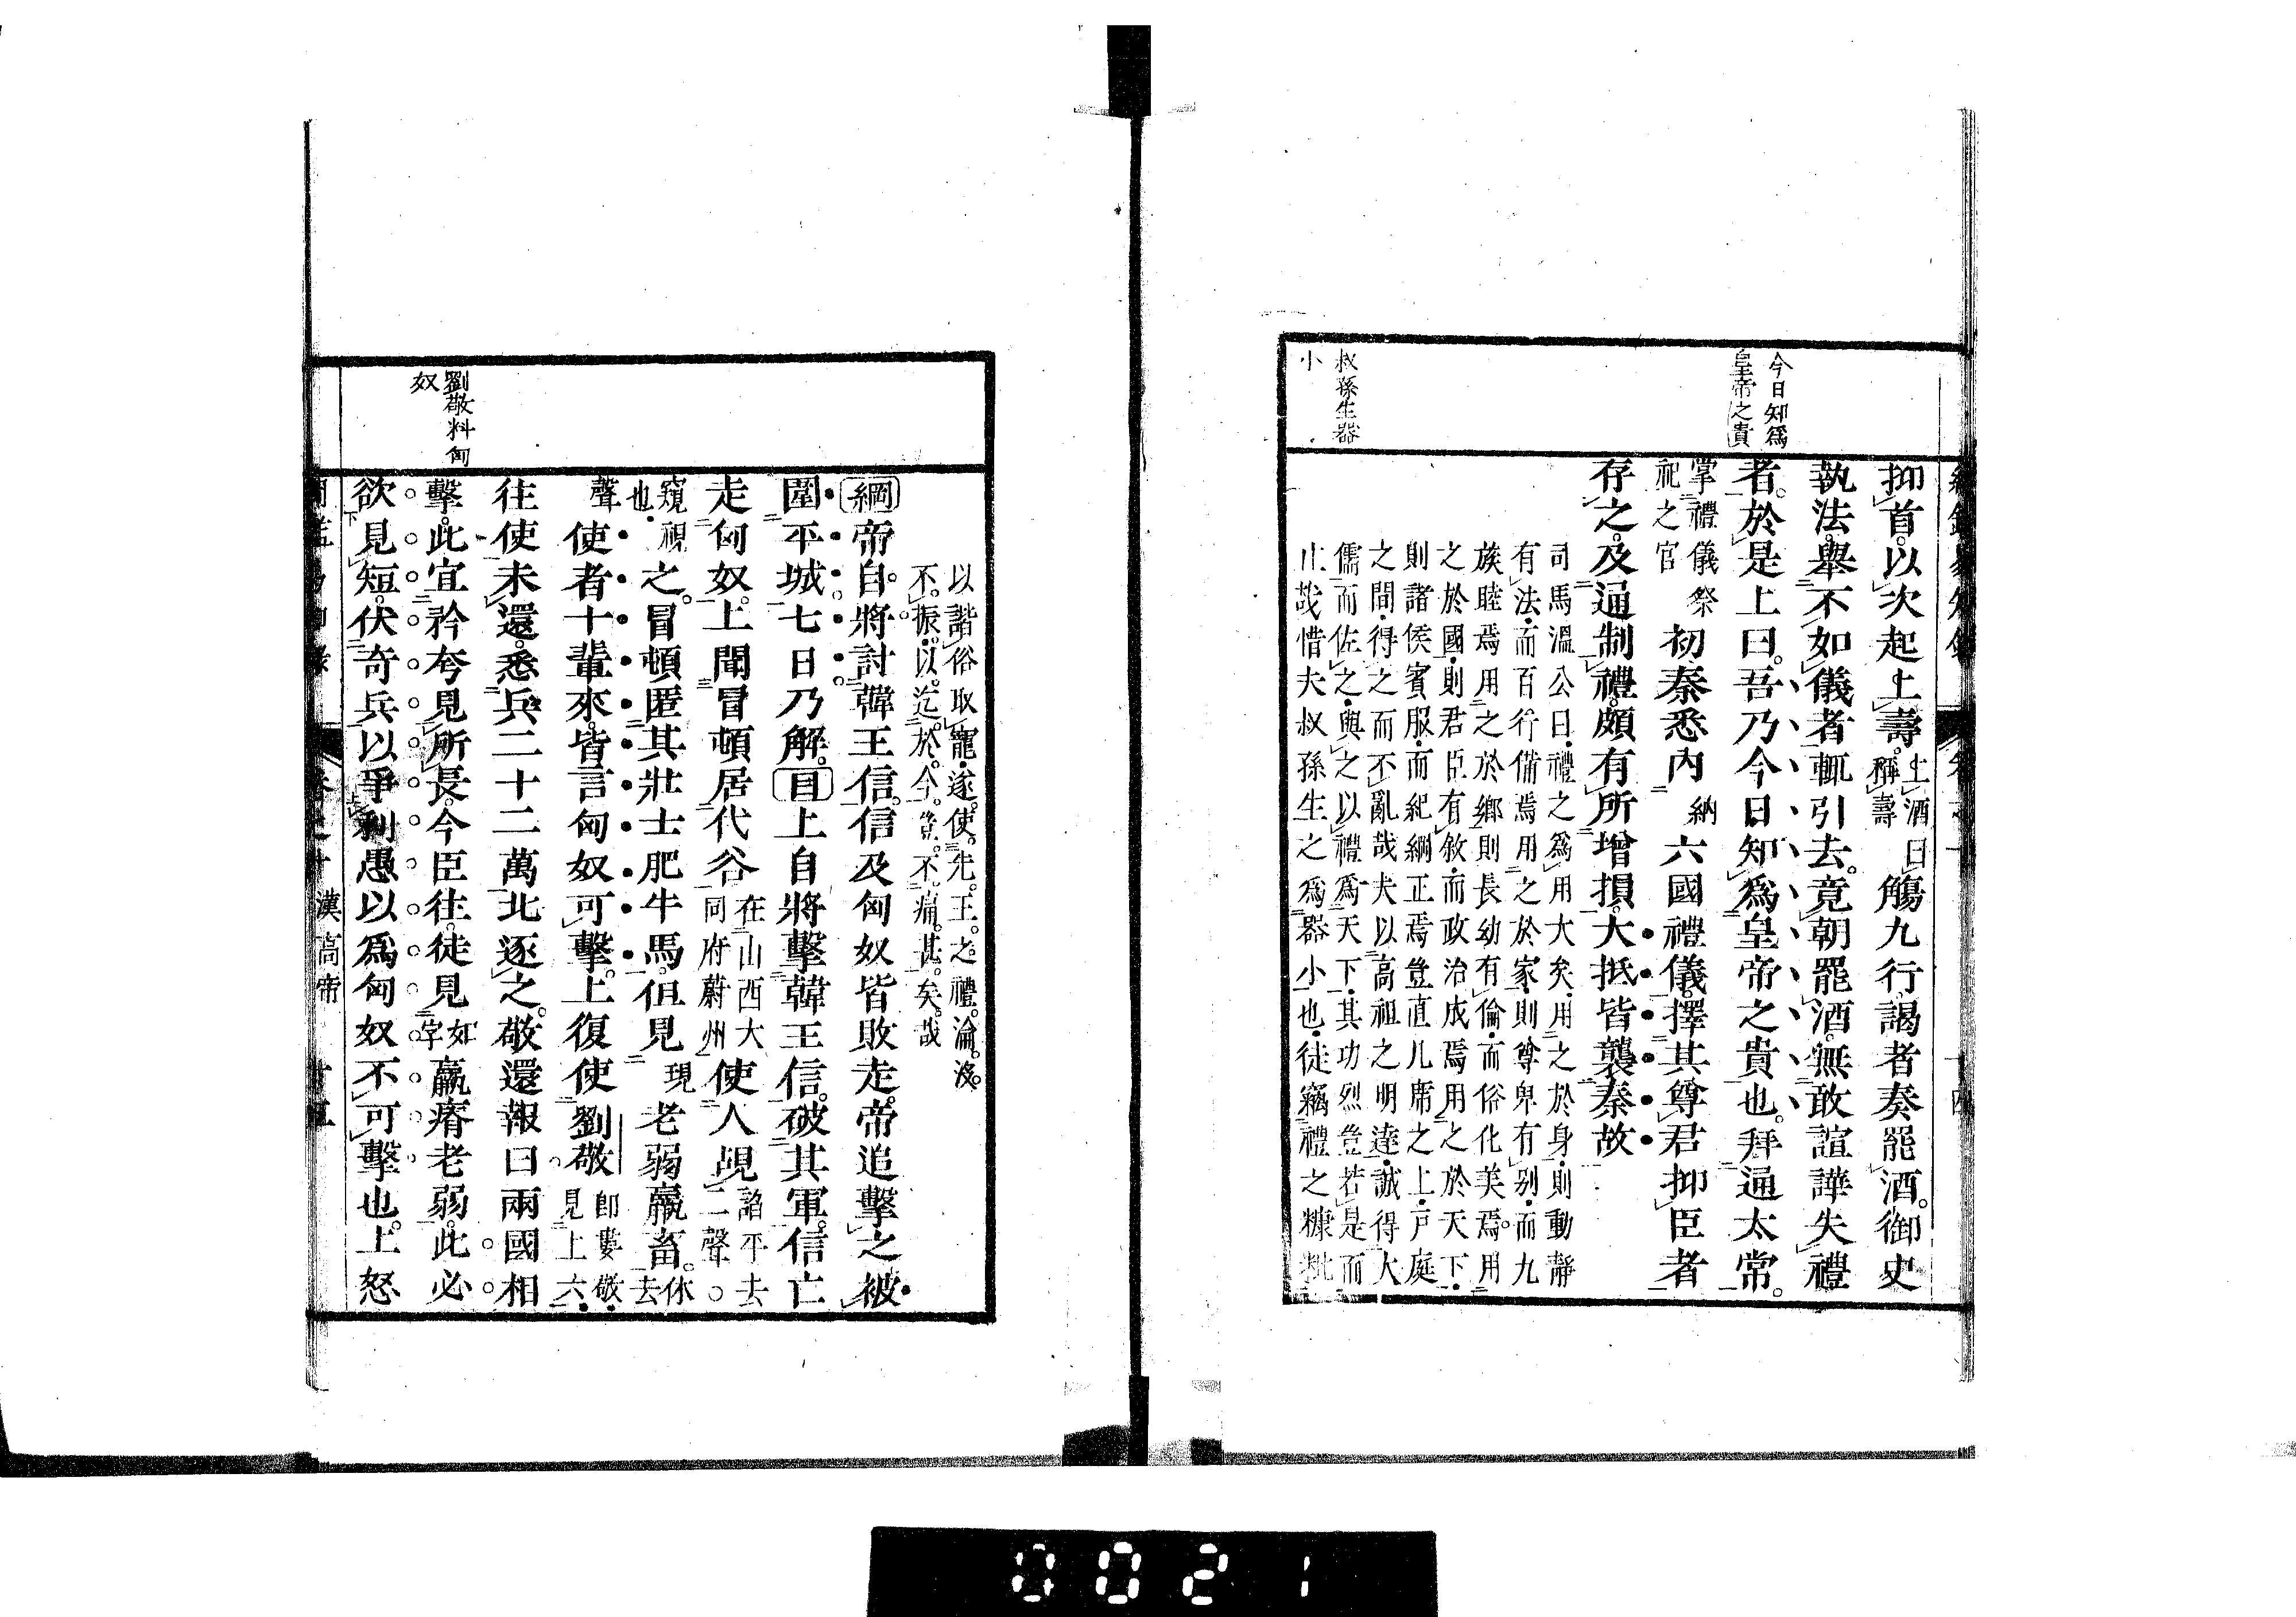 今日知爲
皇帝之貴
叔孫生器
小
抑首以次起上壽上酒曰稱壽觴九行謁者奏罷酒御史
執法舉不如儀者輒引去竟朝罷酒無敢諠譁失禮
者於是上曰吾乃今日知爲皇帝之貴也拜通太常
掌禮儀祭祀之官初秦悉內納六國禮儀擇其尊君抑臣者
存之及通制禮頗有所增損大抵皆襲秦故
司馬溫公曰禮之爲用大矣用之於身則動靜
有法而百行備焉用之於家則尊卑有別而九
族睦焉用之於鄉則長幼有倫而俗化美焉用
之於國則君臣有敘而政治成焉用之於天下
則諸侯賓服而紀綱正焉豈直几席之上戶庭
之間得之而不亂哉夫以高祖之明達誠得大
儒而佐之與之以禮爲天下其功烈豈若是而
止哉惜夫叔孫生之爲器小也徒竊禮之糠粃
以諧俗取寵遂使先王之禮淪沒
不振以迄於今豈不痛甚矣哉
綱帝自將討韓王信信及匈奴皆敗走帝追擊之被
圍平城七日乃解目上自將擊韓王信破其軍信亡
走匈奴上聞冒頓居代谷在山西大同府蔚州使人覘諂平去二聲
窺視也之冒頓匿其壯士肥牛馬但見現老弱羸畜休去
聲使者十輩來皆言匈奴可擊上復使劉敬卽婁敬見上六
往使未還悉兵二十二萬北逐之敬還報曰兩國相
擊此宜矜夸見所長今臣往徒見如字羸瘠老弱此必
欲見短伏奇兵以爭利愚以爲匈奴不可擊也上怒
劉敬料匈
奴
漢高帝